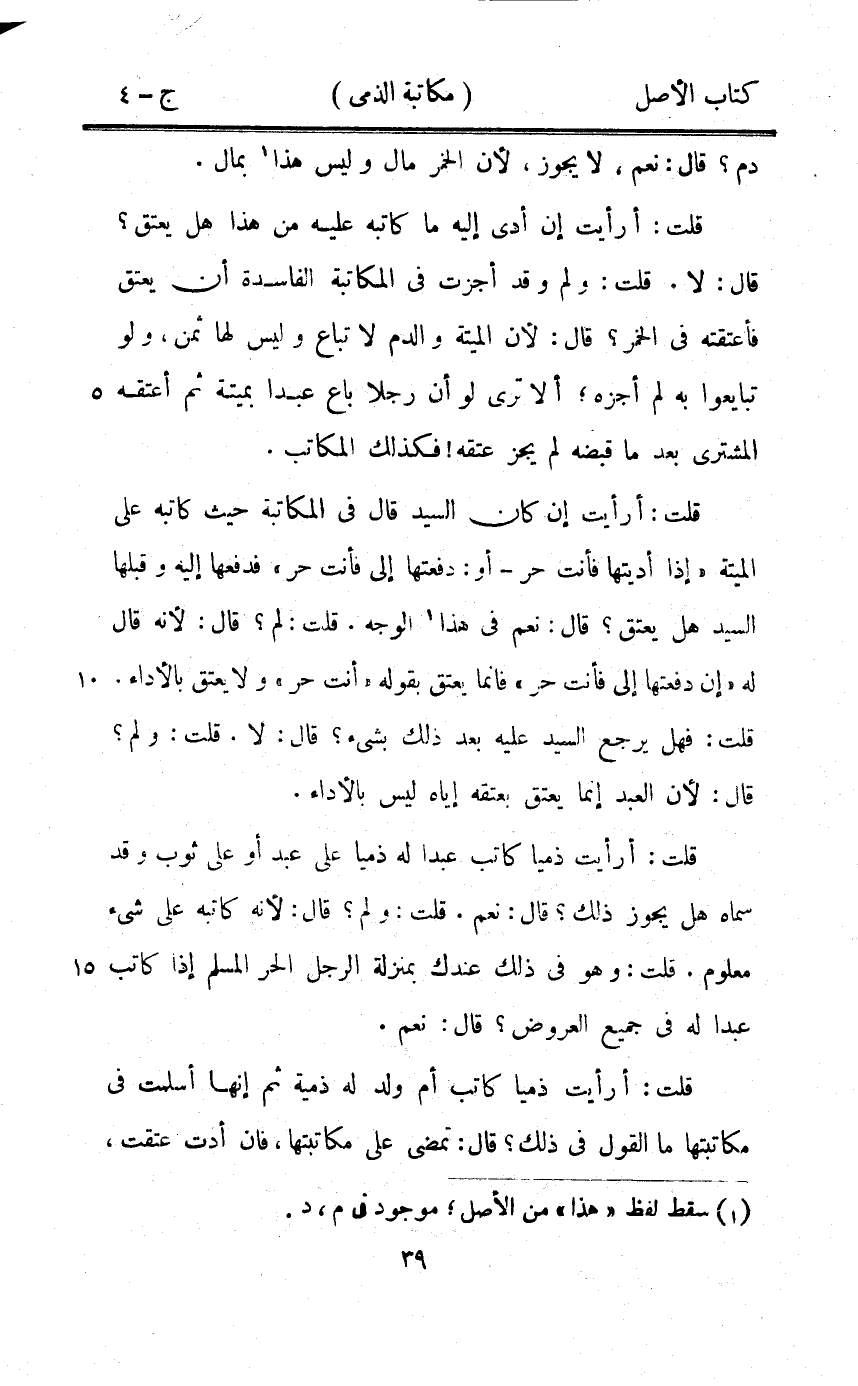 كتاب الأصل ( مكاتبة الذمى ) ج - ٤
دم ؟ قال : نعم ، لا يجوز ، لأن الخمر مال و ليس هذا ١ بمال .
قلت : أ رأيت إن أدى إليه ما كاتبه عليه من هذا هل يعتق ؟
قال : لا . قلت : و لم و قد أجزت فى المكاتبة الفاسدة أن يعتق
فأعتقته فى الخمر ؟ قال : لأن الميتة و الدم لا تباع و ليس لها ثمن ، و لو
تبايعوا به لم أجزه ؛ أ لا ترى لو أن رجلا باع عبدا بميتة ثم أعتقه ٥
المشترى بعد ما قبضه لم يجز عتقه ! فكذلك المكاتب .
قلت : أ رأيت إن كان السيد قال فى المكاتبة حيث كاتبه على
الميتة « إذا أديتها فأنت حر - أو : دفعتها إلى فأنت حر » فدفعها إليه و قبلها
السيد هل يعتق ؟ قال : نعم فى هذا ١ الوجه . قلت : لم ؟ قال : لأنه قال
له « إن دفعتها إلى فأنت حر » فانما يعتق بقوله « أنت حر » و لا يعتق بالأداء . ١٠
قلت : فهل يرجع السيد عليه بعد ذلك بشىء ؟ قال : لا . قلت : و لم ؟
قال : لأن العبد إنما يعتق بعتقه إياه ليس بالأداء .
قلت : أ رأيت ذميا كاتب عبدا له ذميا على عبد أو على ثوب و قد
سماه هل يجوز ذلك ؟ قال : نعم . قلت : و لم ؟ قال : لأنه كاتبه على شىء
معلوم . قلت : و هو فى ذلك عندك بمنزلة الرجل الحر المسلم إذا كاتب ١٥
عبدا له فى جميع العروض ؟ قال : نعم .
قلت : أ رأيت ذميا كاتب أم ولد له ذمية ثم إنها أسلمت فى
مكاتبتها ما القول فى ذلك ؟ قال : تمضى على مكاتبتها ، فان أدت عتقت ،
(١) سقط لفظ « هذا » من الأصل ؛ موجود فى م ، د .
٣٩